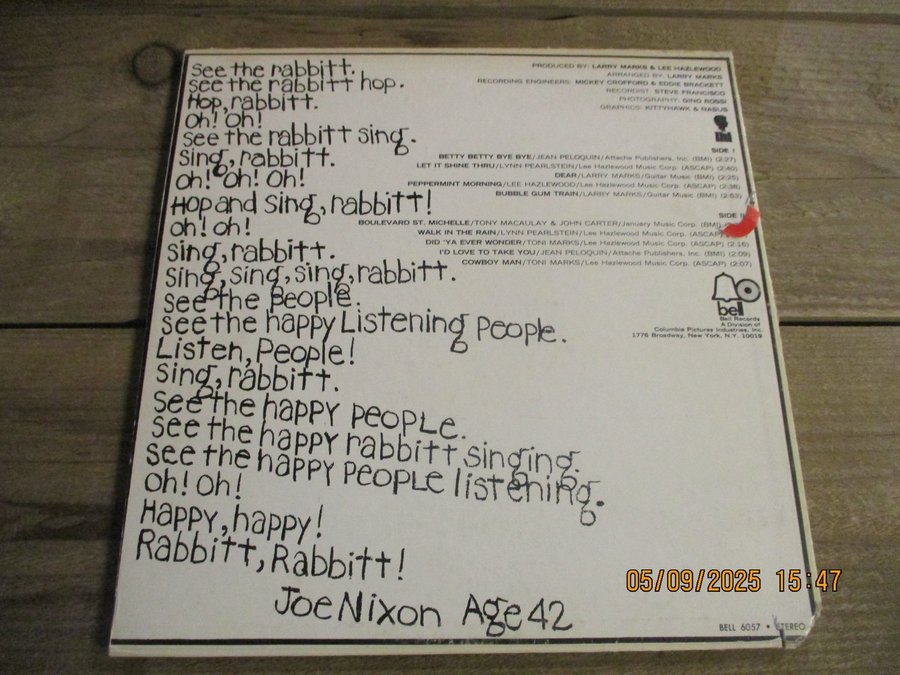 see the rabbitt.
see the rabbitt hop.
Hop, rabbitt.
oh! oh!
see the rabbitt sing.
sing, rabbitt.
oh! oh! oh!
Hop and sing, rabbitt!
oh! oh!
sing, rabbitt.
sing, sing, sing, rabbitt.
see the people.
see the happy Listening people.
Listen, People!
sing, rabbitt.
see the happy people.
see the happy rabbitt singing.
see the happy people listening.
oh! oh!
Happy, happy!
Rabbitt, Rabbitt!
Joe Nixon Age 42
PRODUCED BY: LARRY MARKS & LEE HAZLEWOOD
ARRANGED BY: LARRY MARKS
RECORDING ENGINEERS: MICKEY CROFFORD & EDDIE BRACKETT
RECORDIST: STEVE FRANCISCO
PHOTOGRAPHY: GINO ROSSI
GRAPHICS: KITTYHAWK & NASUS
SIDE I
BETTY BETTY BYE BYE/JEAN PELOQUIN/Attache Publishers, Inc. (BMI) (2:27)
LET IT SHINE THRU/LYNN PEARLSTEIN/Lee Hazlewood Music Corp. (ASCAP) (2:40)
DEAR/LARRY MARKS/Guitar Music (BMI) (2:25)
PEPPERMINT MORNING/LEE HAZLEWOOD/Lee Hazlewood Music Corp. (ASCAP) (2:38)
BUBBLE GUM TRAIN/LARRY MARKS/Guitar Music (BMI) (2:53)
SIDE II
BOULEVARD ST. MICHELLE/TONY MACAULAY & JOHN CARTER/January Music Corp. (BMI)
WALK IN THE RAIN/LYNN PEARLSTEIN/Lee Hazlewood Music Corp. (ASCAP)
DID 'YA EVER WONDER/TONI MARKS/Lee Hazlewood Music Corp. (ASCAP) (2:16)
I'D LOVE TO TAKE YOU/JEAN PELOQUIN/Attache Publishers, Inc. (BMI) (2:09)
COWBOY MAN/TONI MARKS/Lee Hazlewood Music Corp. (ASCAP) (2:07)
bell
Bell Records
A Division of
Columbia Pictures Industries, Inc.
1776 Broadway, New York, N.Y. 10019
BELL 6057 • STEREO
05/09/2025 15:47